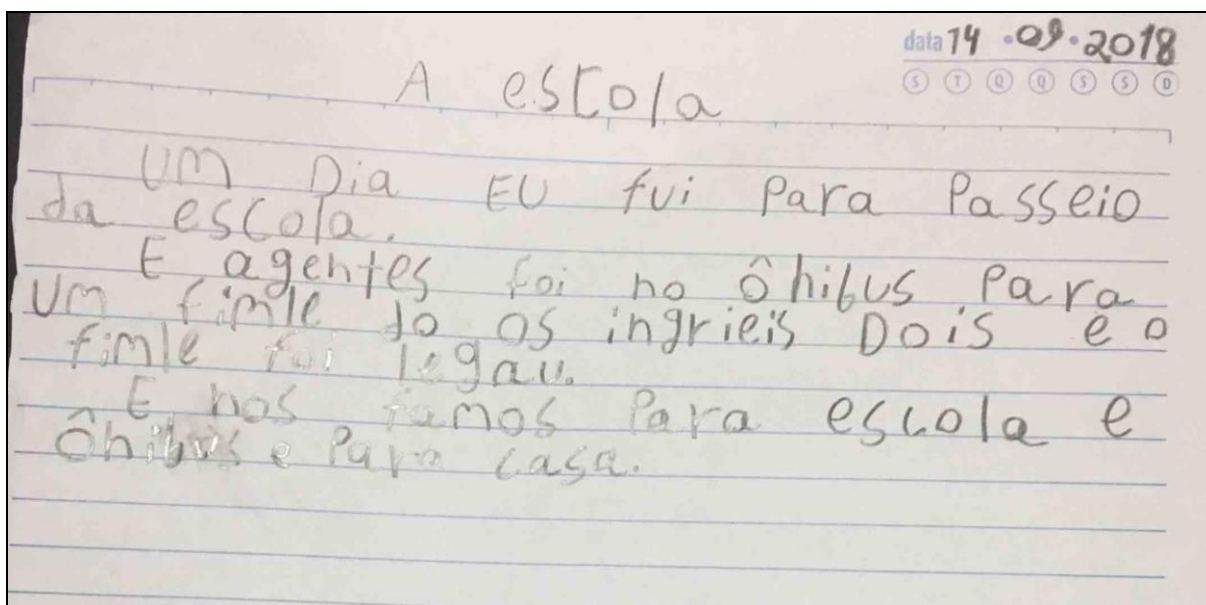 data 14 • 09 • 2018
S T Q Q S S D
A escola
UM Dia EU fui Para Passeio
da escola.
E agentes foi no ônibus Para
Um fimle do os ingrieis Dois e o
fimle foi legau.
E nos famos Para escola e
ônibus e Para casa.